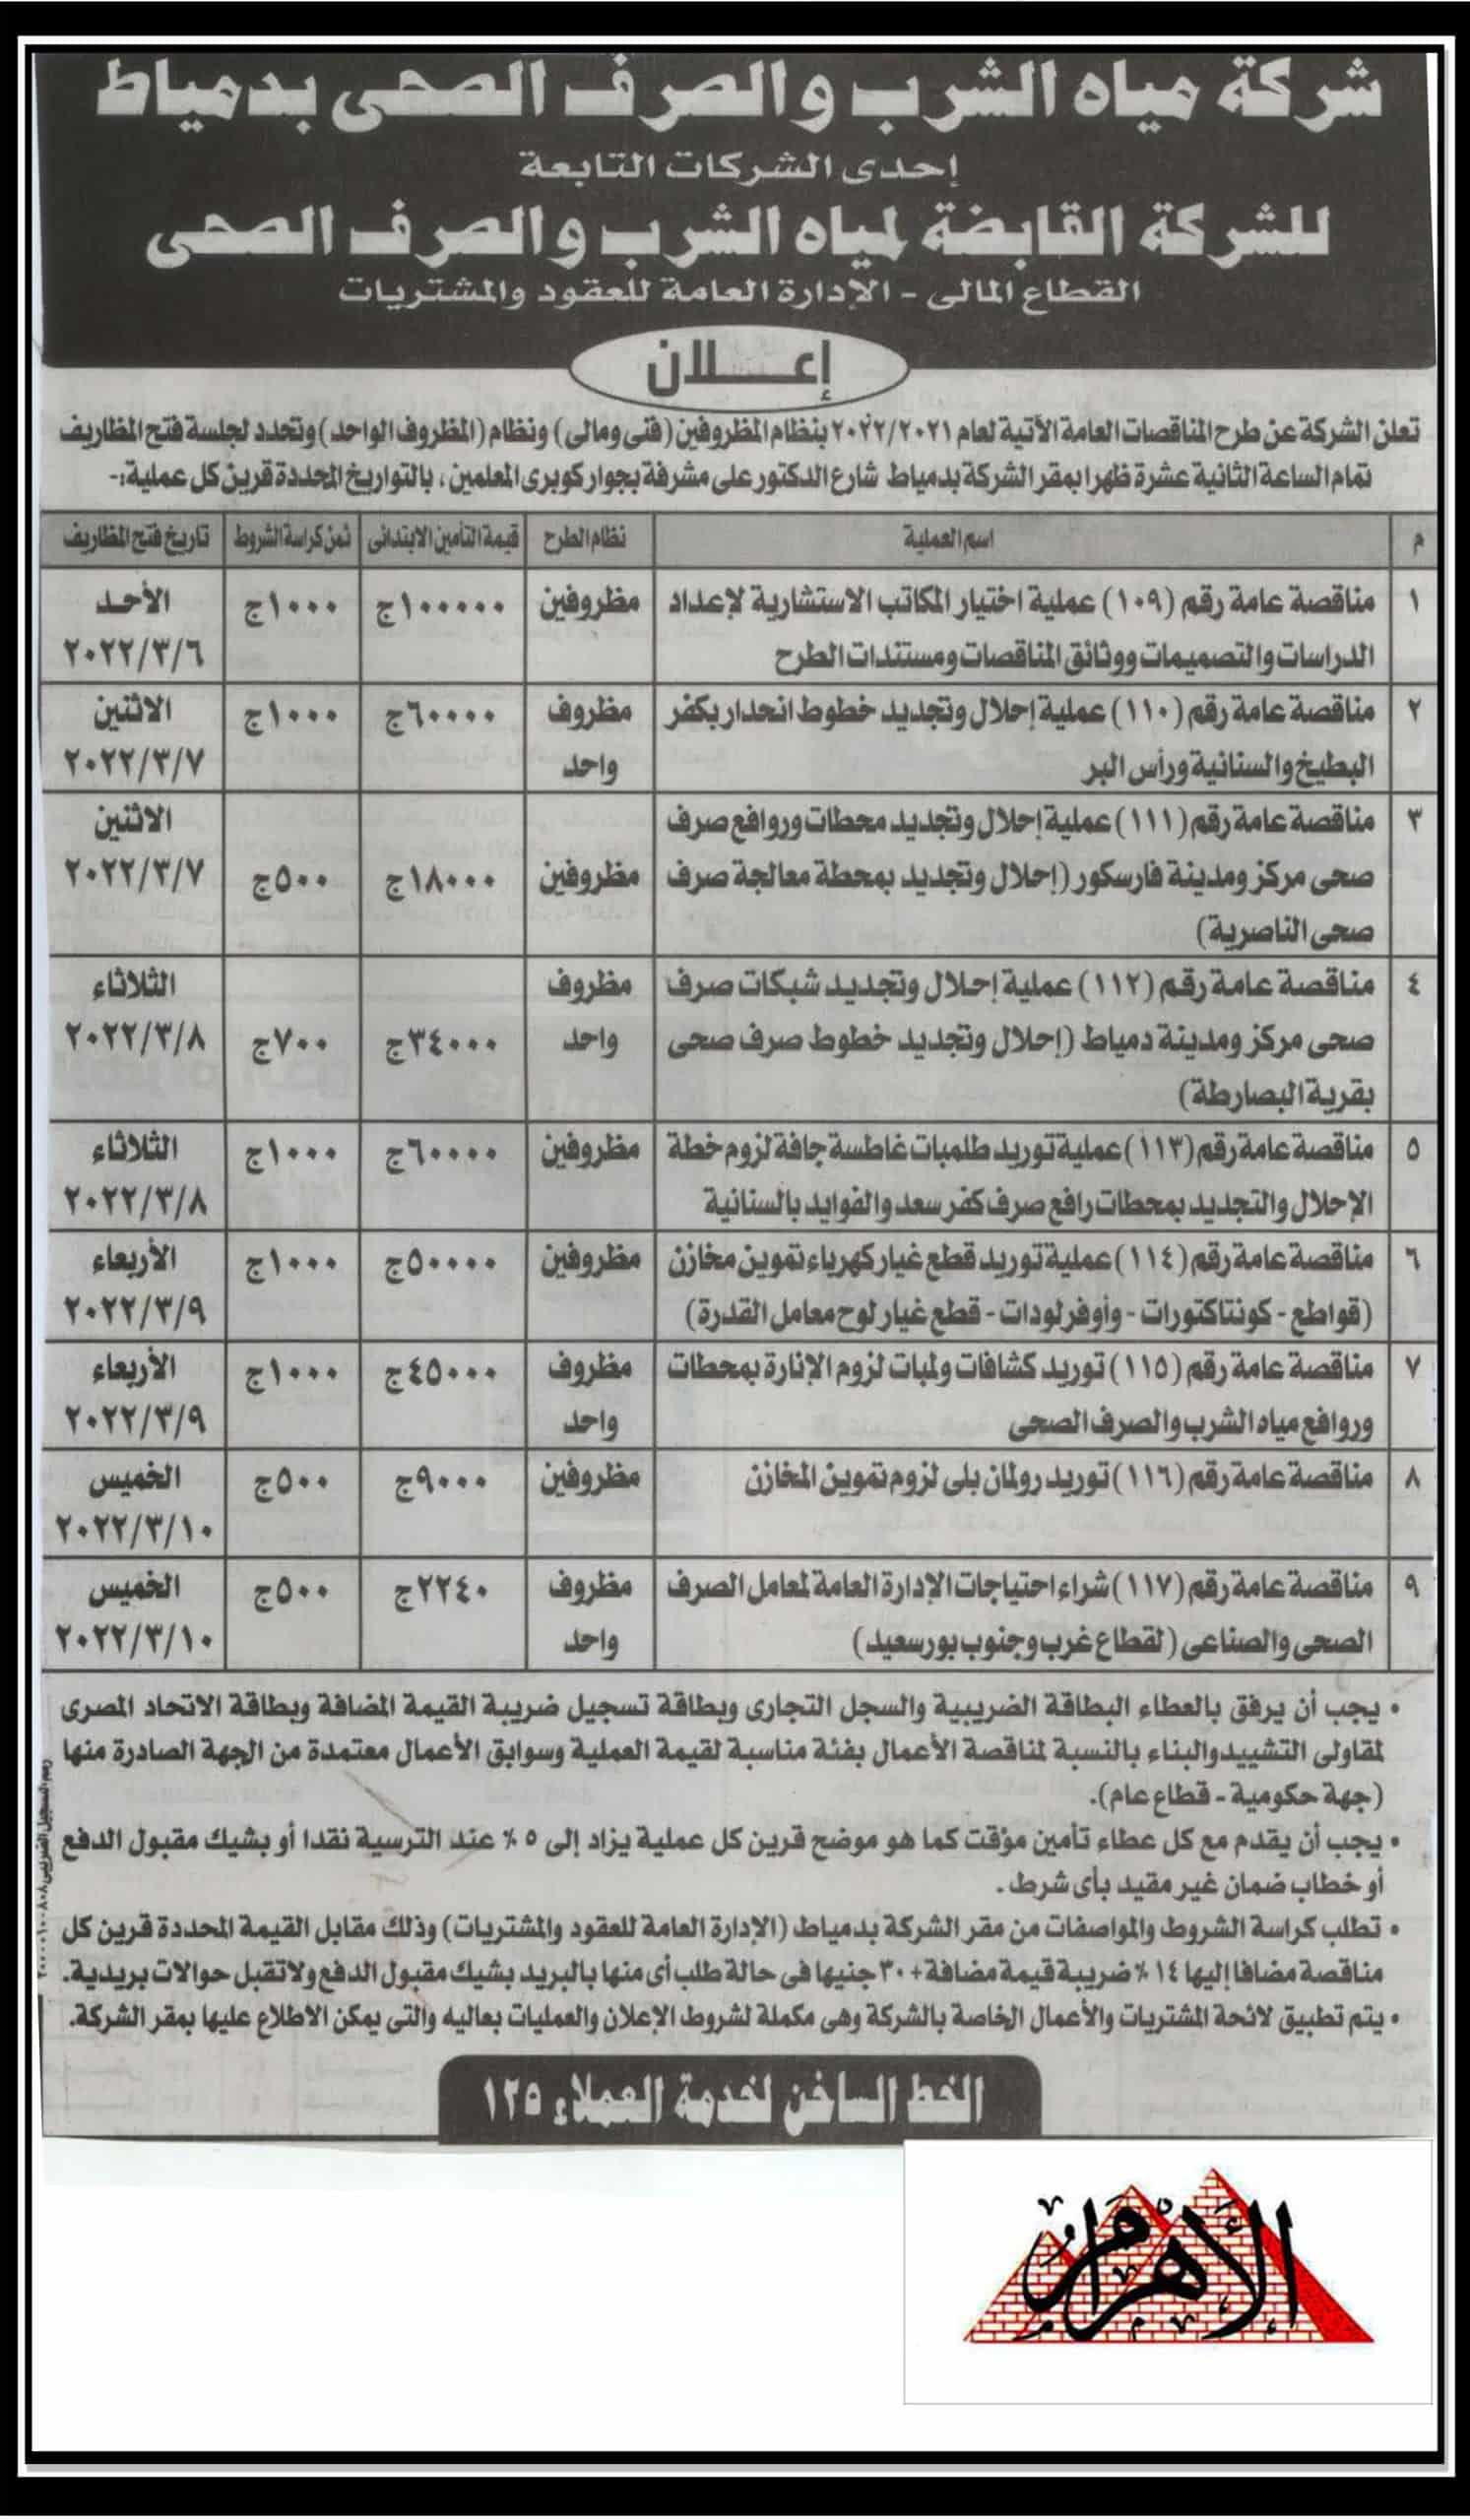 شركة مياه الشرب والصرف الصحى بدمياط
إحدى الشركات التابعة
للشركة القابضة لمياه الشرب والصرف الصحى
القطاع المالى - الإدارة العامة للعقود والمشتريات
إعـــلان
تعلن الشركة عن طرح المناقصات العامة الأتية لعام ٢٠٢٢/٢٠٢١ بنظام المظروفين (فنى ومالى) ونظام (المظروف الواحد) وتحدد لجلسة فتح المظاريف
تمام الساعة الثانية عشرة ظهرا بمقر الشركة بدمياط شارع الدكتور على مشرفة بجوار كوبرى المعلمين، بالتواريخ المحددة قرين كل عملية:-
م اسم العملية نظام الطرح قيمة التأمين الابتدائى ثمن كراسة الشروط تاريخ فتح المظاريف
١ مناقصة عامة رقم (١٠٩) عملية اختيار المكاتب الاستشارية لإعداد مظروفين ١٠٠٠٠٠ج ١٠٠٠ج الأحد
الدراسات والتصميمات ووثائق المناقصات ومستندات الطرح ٢٠٢٢/٣/٦
٢ مناقصة عامة رقم (١١٠) عملية إحلال وتجديد خطوط انحدار بكفر مظروف ٦٠٠٠٠ج ١٠٠٠ج الاثنين
البطيخ والسنانية ورأس البر واحد ٢٠٢٢/٣/٧
٣ مناقصة عامة رقم (١١١) عملية إحلال وتجديد محطات وروافع صرف الاثنين
صحى مركز ومدينة فارسكور (إحلال وتجديد بمحطة معالجة صرف مظروفين ١٨٠٠٠ج ٥٠٠ج ٢٠٢٢/٣/٧
صحى الناصرية)
٤ مناقصة عامة رقم (١١٢) عملية إحلال وتجديد شبكات صرف مظروف الثلاثاء
صحى مركز ومدينة دمياط (إحلال وتجديد خطوط صرف صحى واحد ٣٤٠٠٠ج ٧٠٠ج ٢٠٢٢/٣/٨
بقرية البصارطة)
٥ مناقصة عامة رقم (١١٣) عملية توريد طلمبات غاطسة جافة لزوم خطة مظروفين ٦٠٠٠٠ج ١٠٠٠ج الثلاثاء
الإحلال والتجديد بمحطات رافع صرف كفر سعد والفوايد بالسنانية ٢٠٢٢/٣/٨
٦ مناقصة عامة رقم (١١٤) عملية توريد قطع غيار كهرباء تموين مخازن مظروفين ٥٠٠٠٠ج ١٠٠٠ج الأربعاء
(قواطع - كونتاكتورات - وأوفرلودات - قطع غيار لوح معامل القدرة) ٢٠٢٢/٣/٩
٧ مناقصة عامة رقم (١١٥) توريد كشافات ولمبات لزوم الإنارة بمحطات مظروف ٤٥٠٠٠ج ١٠٠٠ج الأربعاء
وروافع مياه الشرب والصرف الصحى واحد ٢٠٢٢/٣/٩
٨ مناقصة عامة رقم (١١٦) توريد رولمان بلى لزوم تموين المخازن مظروفين ٩٠٠٠ج ٥٠٠ج الخميس
٢٠٢٢/٣/١٠
٩ مناقصة عامة رقم (١١٧) شراء احتياجات الإدارة العامة لمعامل الصرف مظروف ٢٢٤٠ج ٥٠٠ج الخميس
الصحى والصناعى (لقطاع غرب وجنوب بورسعيد) واحد ٢٠٢٢/٣/١٠
• يجب أن يرفق بالعطاء البطاقة الضريبية والسجل التجارى وبطاقة تسجيل ضريبة القيمة المضافة وبطاقة الاتحاد المصرى
لمقاولى التشييد والبناء بالنسبة لمناقصة الأعمال بفئة مناسبة لقيمة العملية وسوابق الأعمال معتمدة من الجهة الصادرة منها
(جهة حكومية - قطاع عام).
• يجب أن يقدم مع كل عطاء تأمين مؤقت كما هو موضح قرين كل عملية يزاد إلى ٥ ٪ عند الترسية نقدا أو بشيك مقبول الدفع
أو خطاب ضمان غير مقيد بأى شرط.
• تطلب كراسة الشروط والمواصفات من مقر الشركة بدمياط (الإدارة العامة للعقود والمشتريات) وذلك مقابل القيمة المحددة قرين كل
مناقصة مضافا إليها ١٤ ٪ ضريبة قيمة مضافة + ٣٠ جنيها فى حالة طلب أى منها بالبريد بشيك مقبول الدفع ولا تقبل حوالات بريدية.
• يتم تطبيق لائحة المشتريات والأعمال الخاصة بالشركة وهى مكملة لشروط الإعلان والعمليات بعاليه والتى يمكن الاطلاع عليها بمقر الشركة.
رقم التسجيل الضريبى
الخط الساخن لخدمة العملاء ١٢٥
الأهرام